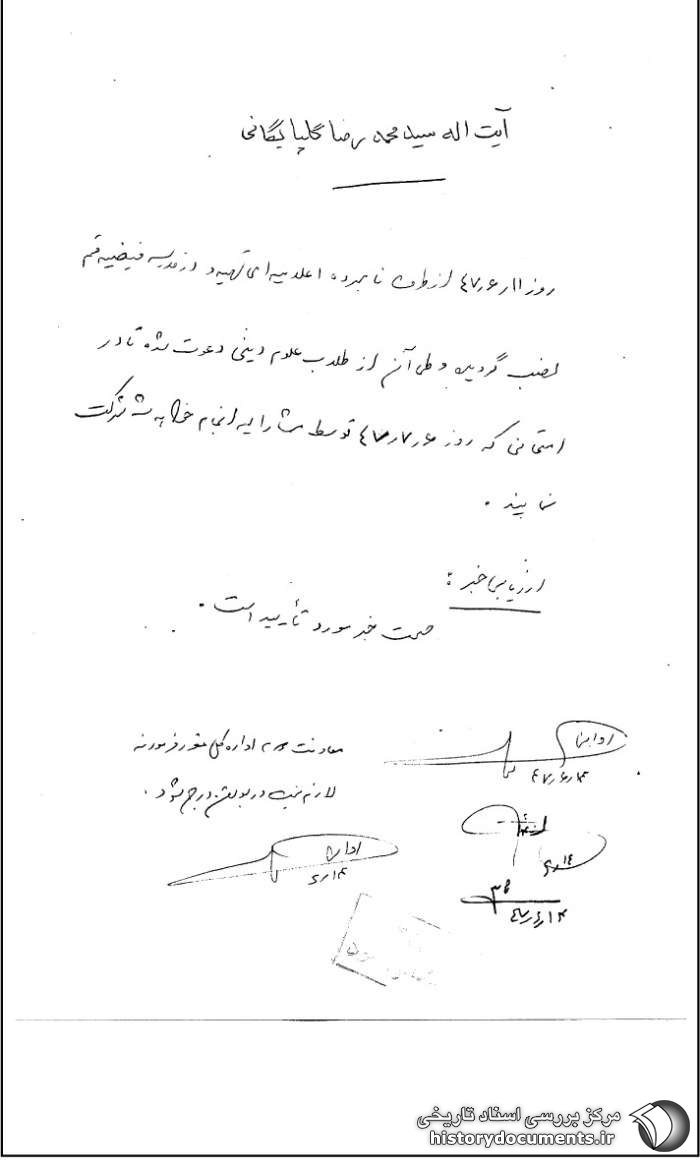 آیت اله سید محمد رضا گلپایگانی
روز ۴۷٫۶٫۱۱ از طرف نامبرده اعلامیه ای تهیه و در مدرسه فیضیه قم
نصب گردیده و طی آن از طلاب علوم دینی دعوت شده تا در
امتحانی که روز ۴۷٫۷٫۶ توسط مشارالیه انجام خواهد شد شرکت
نمایند .
ارزیابی خبر :
صحت خبر مورد تأیید است .
معاونت اداره کل مقرر فرمودند
لازم نیست در بولتن درج شود .
۴۷٫۶٫۱۴
۶٫۱۴
۶٫۱۴
۳۸
۴۷٫۶٫۱۴
مرکز بررسی اسناد تاریخی
historydocuments.ir